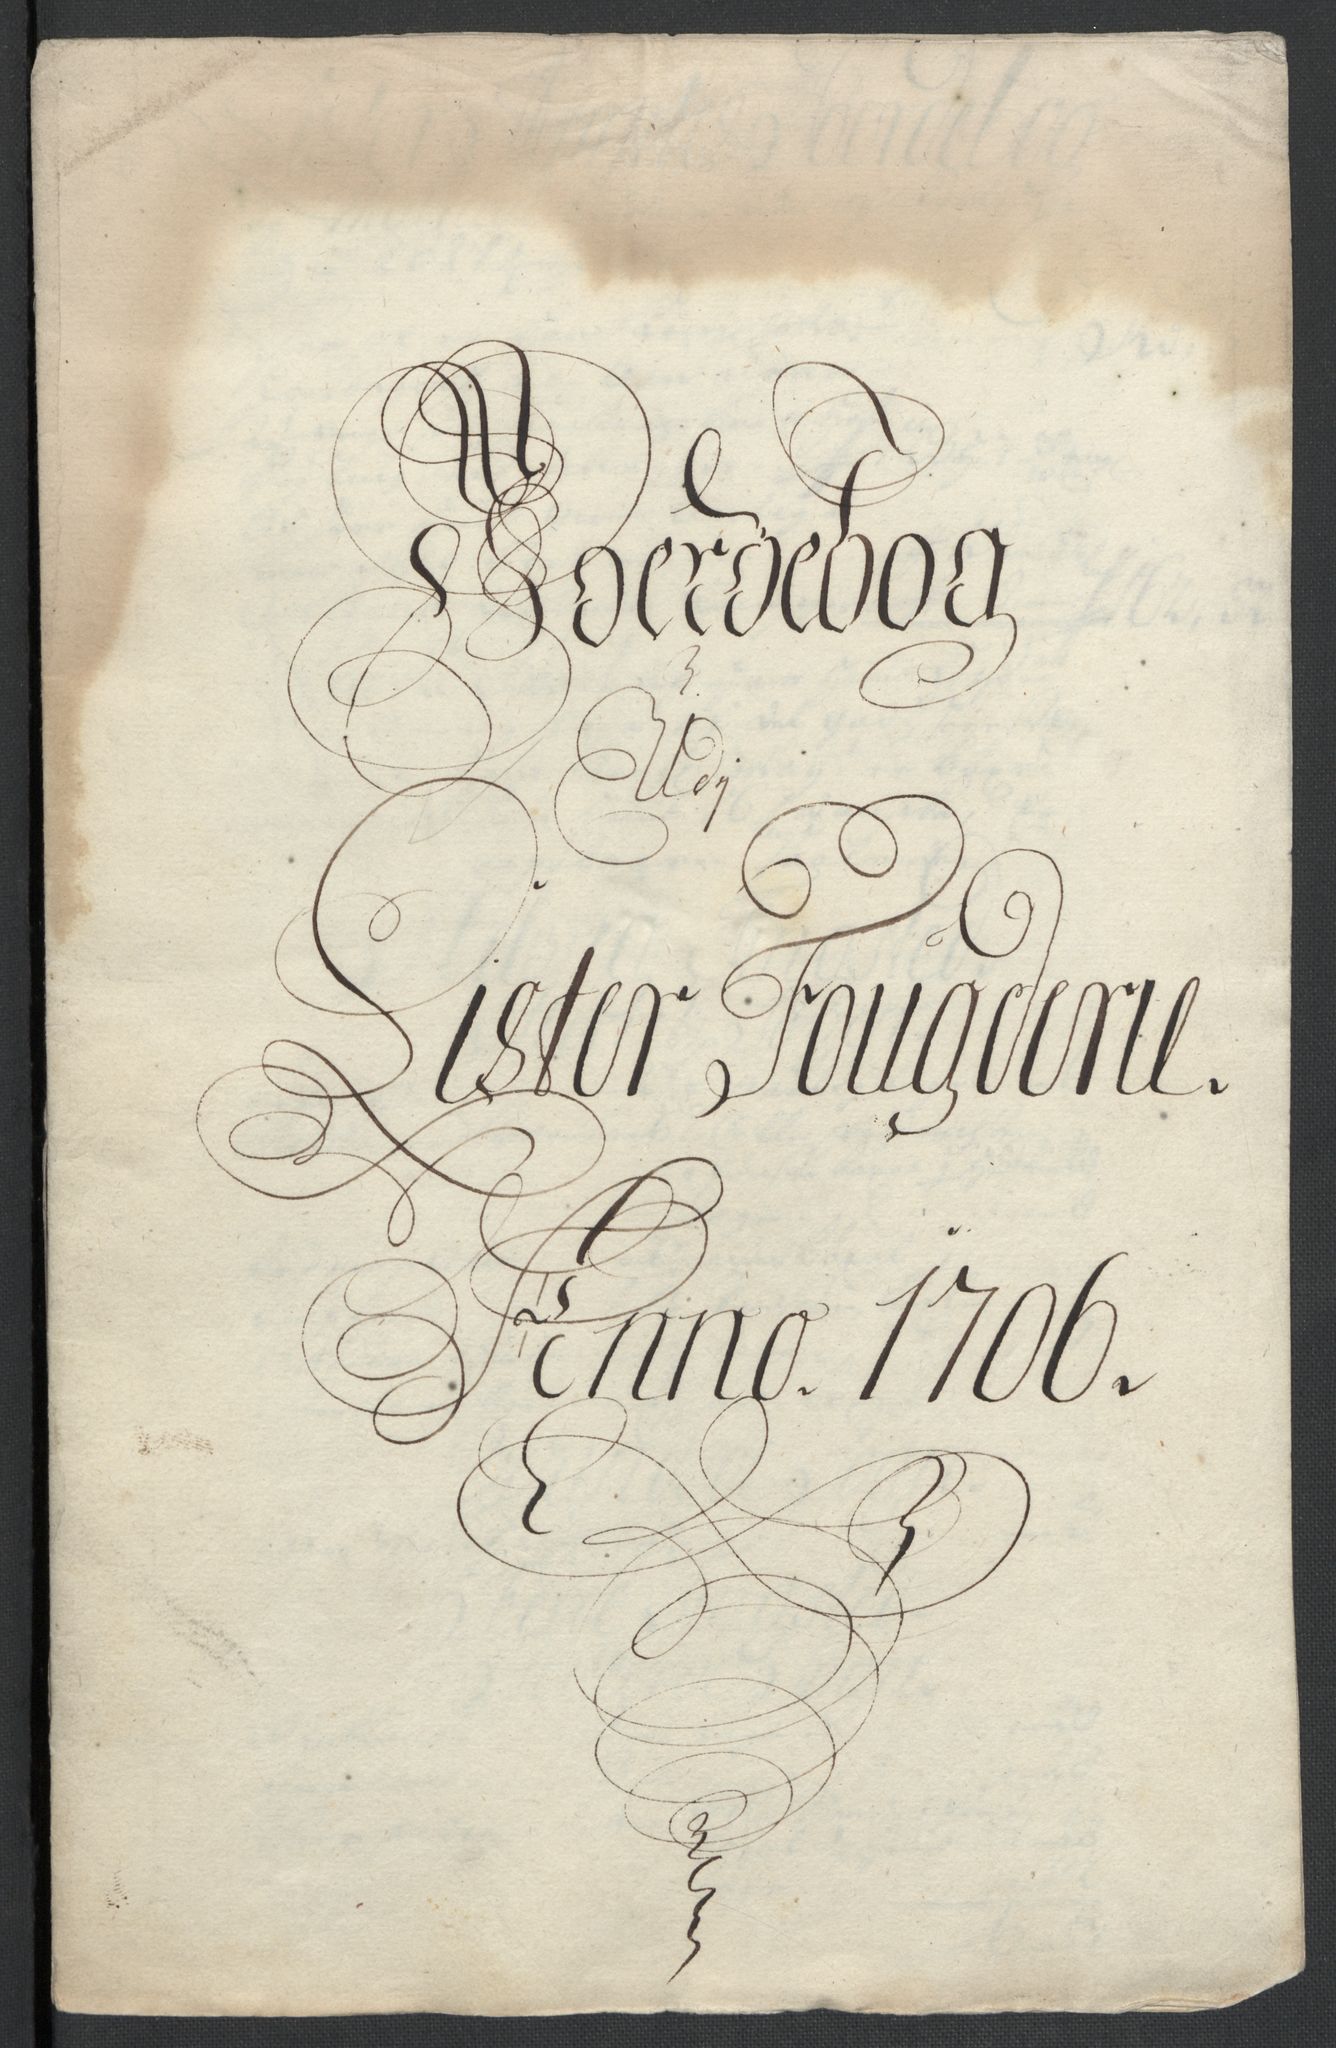 Joerdebog
Udj
Lister Fougderie.
Anno. 1706.